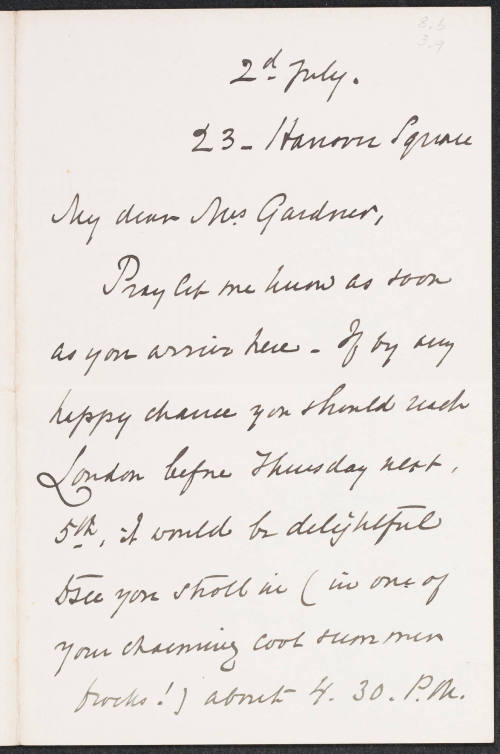 8.b
3.9
2d July.
23 - Hanover Square
My dear Mrs Gardner,
Pray let me know as soon
as you arrive here - If by any
happy chance you should reach
London before Thursday next,
5th, it would be delightful
to see you stroll in (in one of
your charming cool summer
frocks!) about 4.30. P.M.